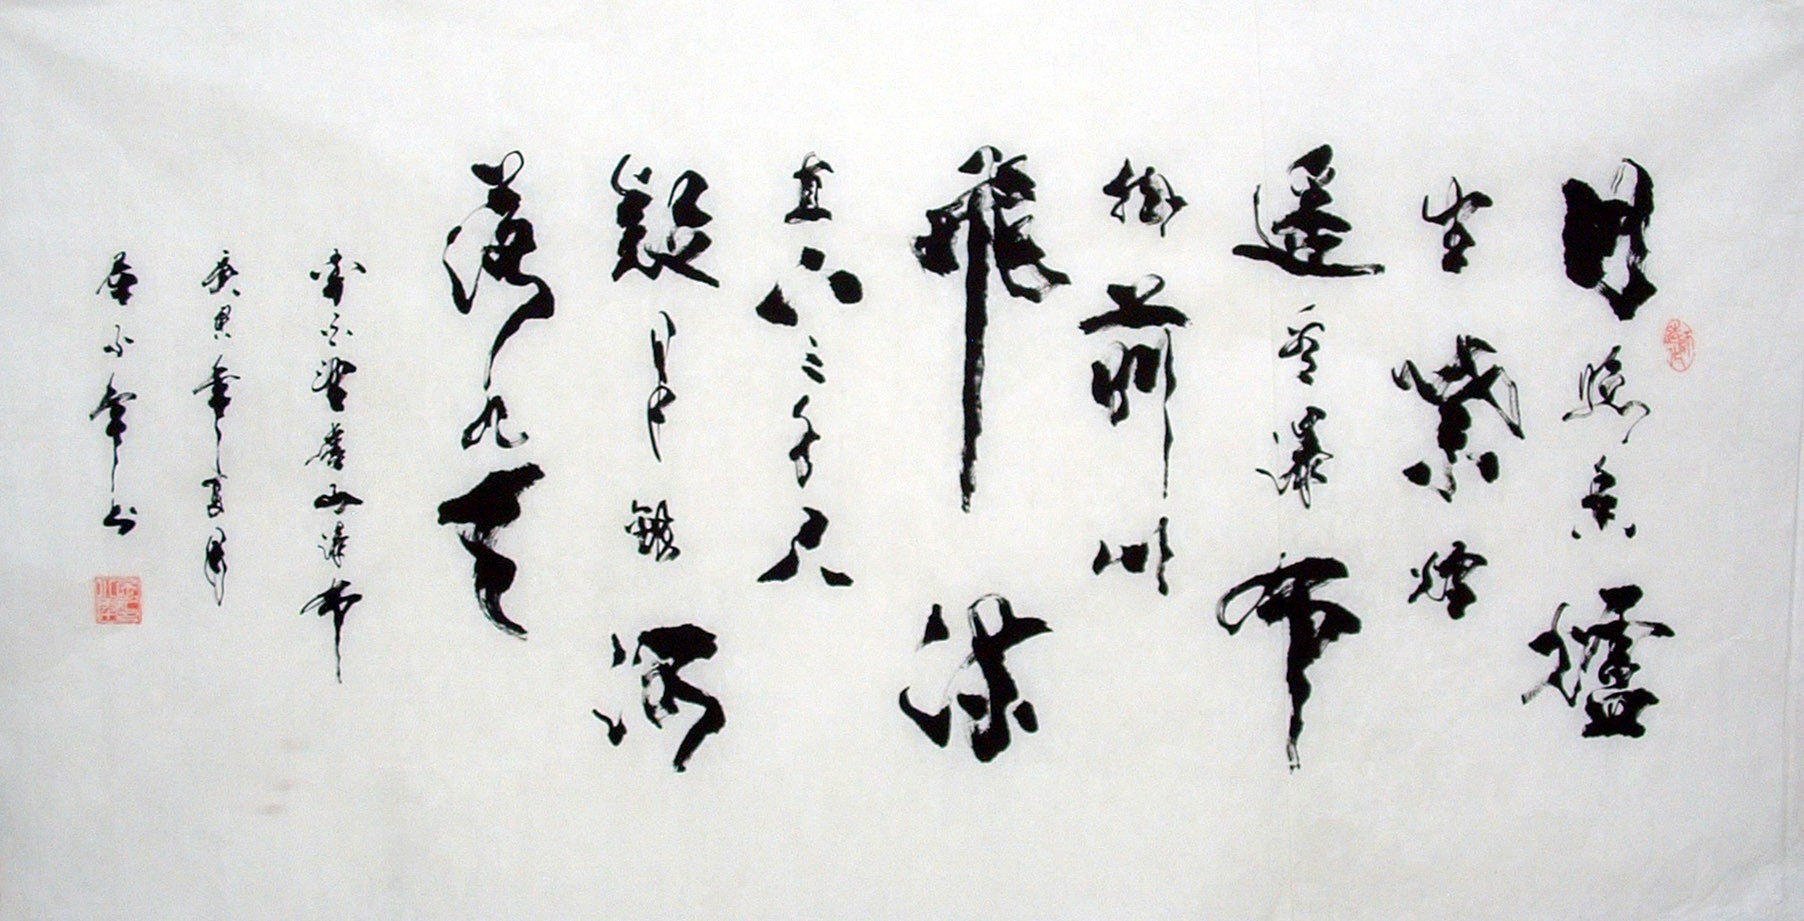 日照香爐
生紫煙
遙看瀑布
掛前川
飛流
直下三千尺
疑是銀河
落九天
李白望廬山瀑布
庚寅年夏月
书